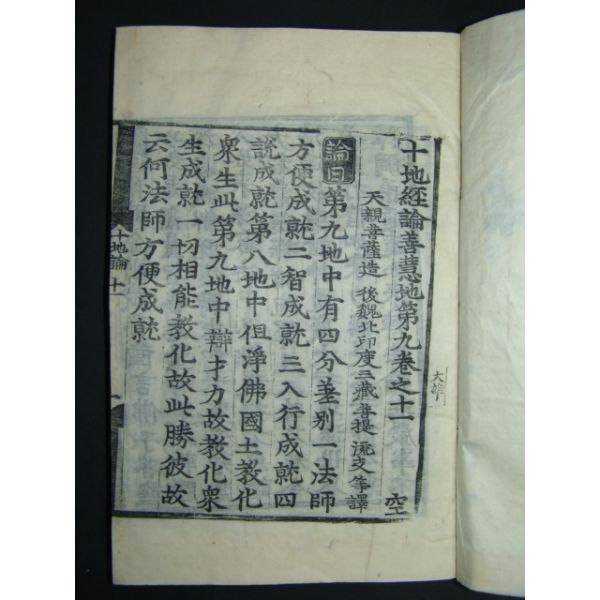 十地經論善慧地第九卷之十一 空
天親菩薩造 後魏北印度三藏菩提流支等譯
論曰第九地中有四分差別一法師
方便成就二智成就三入行成就四
說成就第八地中但淨佛國土教化
衆生此第九地中辯才力故教化衆
生成就一切相能教化故此勝彼故
云何法師方便成就
十地論 十一